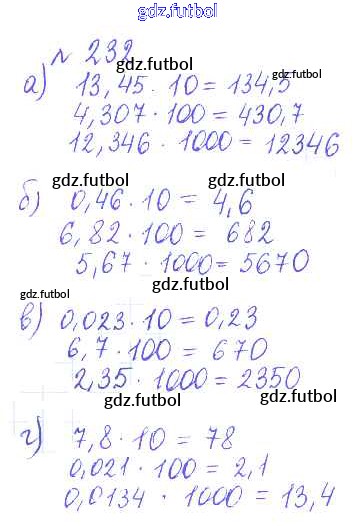 gdz.futbol
№ 232
gdz.futbol gdz.futbol
а) 13,45 · 10 = 134,5
gdz.futbol
4,307 · 100 = 430,7
12,346 · 1000 = 12346
gdz.futbol gdz.futbol
б) 0,46 · 10 = 4,6
6,82 · 100 = 682
5,67 · 1000 = 5670
gdz.futbol
gdz.futbol
в) 0,023 · 10 = 0,23
6,7 · 100 = 670
2,35 · 1000 = 2350
gdz.futbol gdz.futbol
г) 7,8 · 10 = 78
0,021 · 100 = 2,1
0,0134 · 1000 = 13,4
gdz.futbol gdz.futbol